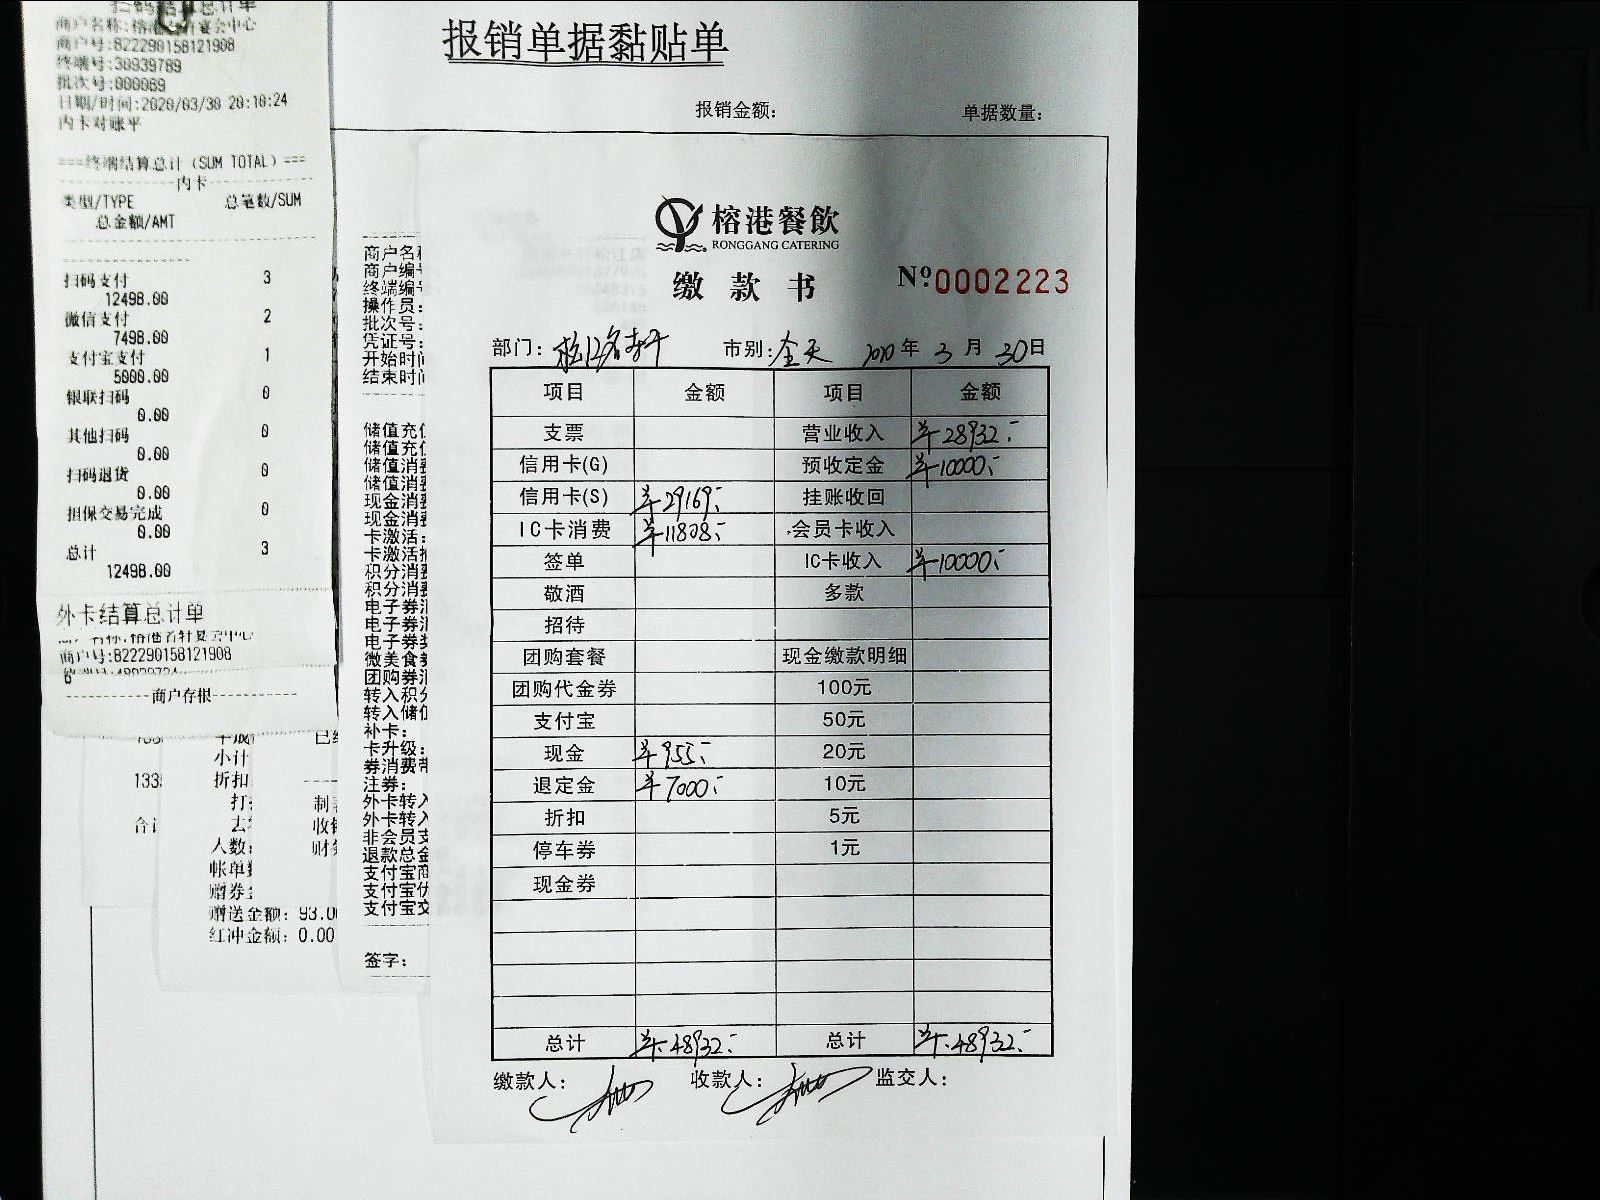 扫码结算总计单
商户名称:榕港名轩宴会中心
商户号:822290158121908
终端号:30939789
批次号:000089
日期/时间:2020/03/30 20:10:24
内卡对账平
===终端结算总计(SUM TOTAL)===
内卡
类型/TYPE 总笔数/SUM
总金额/AMT
扫码支付 3
12498.00
微信支付 2
7498.00
支付宝支付 1
5000.00
银联扫码 0
0.00
其他扫码 0
0.00
扫码退货 0
0.00
担保交易完成 0
0.00
总计 3
12498.00
外卡结算总计单
商户名称:榕港名轩宴会中心
商户号:822290158121908
商户存根
小计
折扣
合计
人数:
赠送金额: 93.0
红冲金额: 0.00
商户名
商户编
终端编
操作员:
批次号:
凭证号:
开始时间
结束时间
储值充
储值充
储值消
储值消
现金消
现金消
卡激活:
卡激活
积分消
积分消
电子券
电子券
电子券
微美食
团购券
转入积
转入储
补卡:
卡升级:
券消费
注券:
外卡转入
外卡转入
非会员支
退款总金
支付宝商
支付宝优
支付宝交
签字:
报销单据黏贴单
报销金额: 单据数量:
榕港餐飲
RONGGANG CATERING
缴款书 №0002223
部门: 松江名轩 市别: 全天 2020年 3月 30日
项目 金额 项目 金额
支票 营业收入 ¥28932.-
信用卡(G) 预收定金 ¥10000.-
信用卡(S) ¥29169.- 挂账收回
IC卡消费 ¥11808.- 会员卡收入
签单 IC卡收入 ¥10000.-
敬酒 多款
招待
团购套餐 现金缴款明细
团购代金券 100元
支付宝 50元
现金 ¥955.- 20元
退定金 ¥7000.- 10元
折扣 5元
停车券 1元
现金券
总计 ¥48932.- 总计 ¥48932.-
缴款人: 收款人: 监交人: